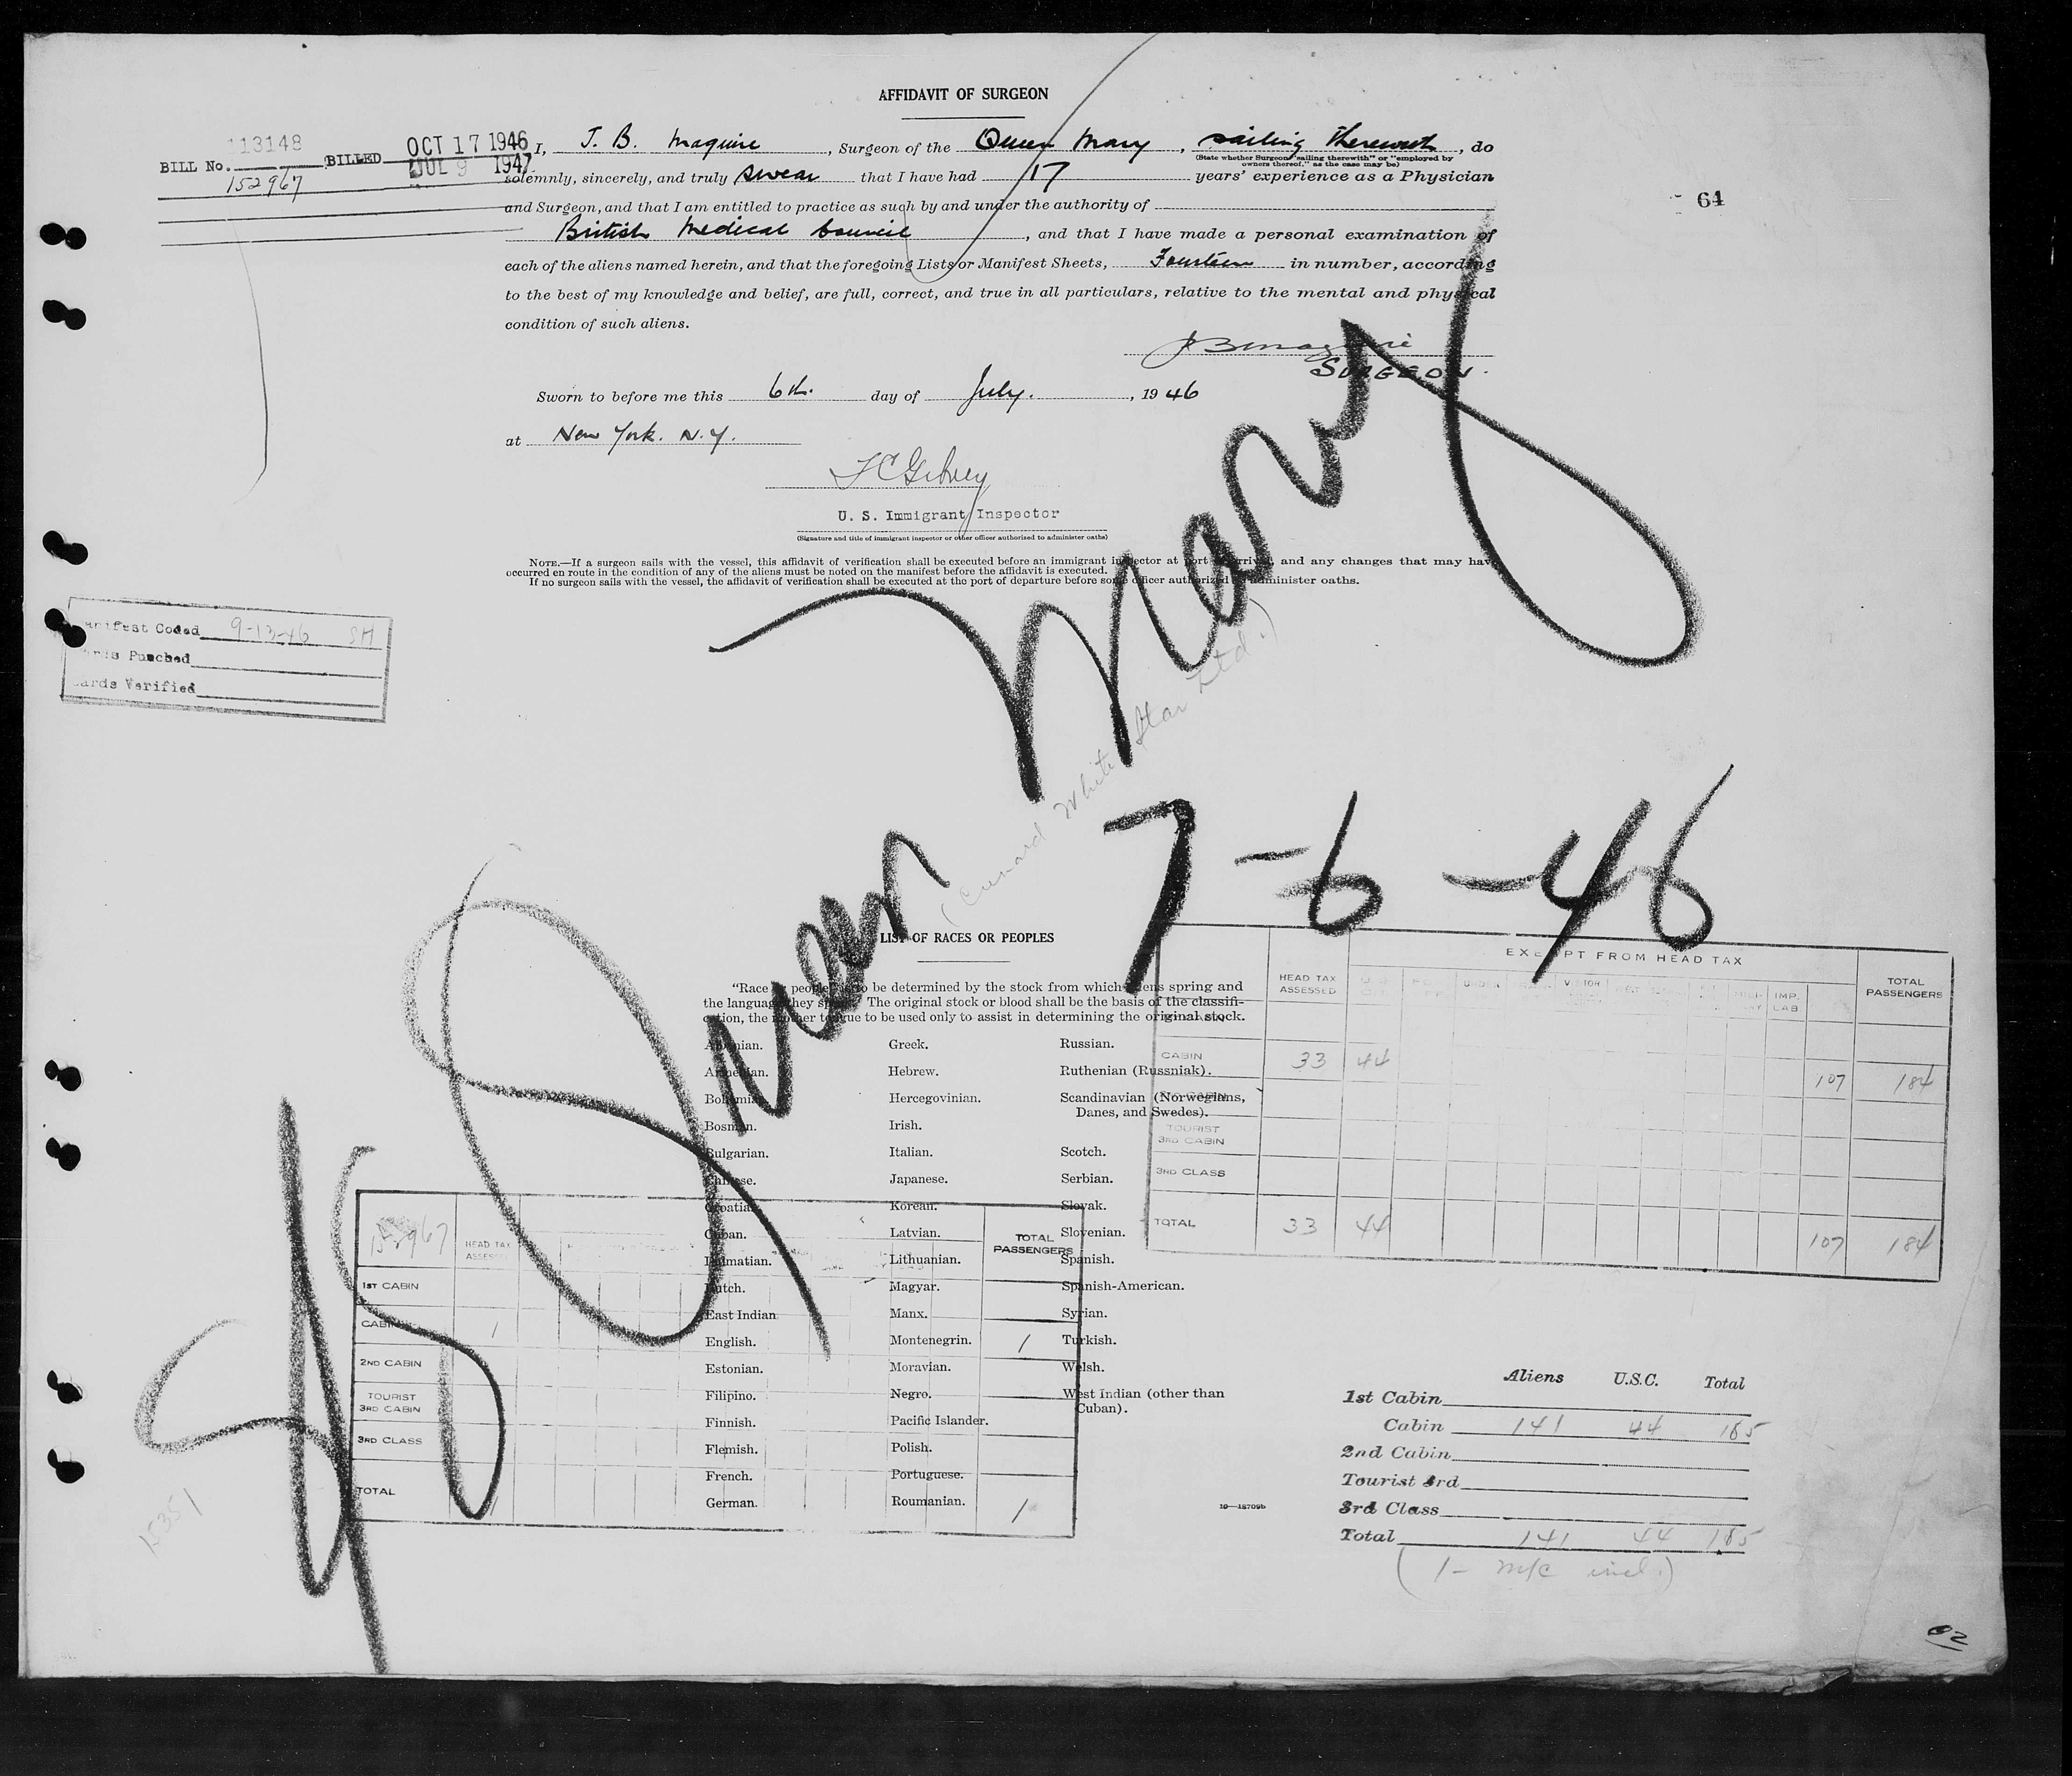 AFFIDAVIT OF SURGEON
113148
BILL No. BILLED OCT 17 1946
152967 JUL 9 1947
I, J. B. Maguire, Surgeon of the Queen Mary, sailing therewith, do
(State whether Surgeon "sailing therewith" or "employed by
owners thereof," as the case may be)
solemnly, sincerely, and truly swear that I have had 17 years' experience as a Physician
64
and Surgeon, and that I am entitled to practice as such by and under the authority of
British Medical Council, and that I have made a personal examination of
each of the aliens named herein, and that the foregoing Lists or Manifest Sheets, Fourteen in number, according
to the best of my knowledge and belief, are full, correct, and true in all particulars, relative to the mental and physical
condition of such aliens.
J B Maguire
SURGEON.
Sworn to before me this 6th. day of July., 1946
at New York. N.Y.
U. S. Immigrant Inspector
(Signature and title of immigrant inspector or other officer authorized to administer oaths)
NOTE.—If a surgeon sails with the vessel, this affidavit of verification shall be executed before an immigrant inspector at port of arrival, and any changes that may have
occurred en route in the condition of any of the aliens must be noted on the manifest before the affidavit is executed.
If no surgeon sails with the vessel, the affidavit of verification shall be executed at the port of departure before some officer authorized to administer oaths.
Manifest Coded 9-13-46 SH
Cards Punched
Cards Verified
SS Queen Mary
(Cunard White Star Ltd.)
7-6-46
LIST OF RACES OR PEOPLES
"Race or people" is to be determined by the stock from which aliens spring and
the language they speak. The original stock or blood shall be the basis of the classifi-
cation, the mother tongue to be used only to assist in determining the original stock.
Albanian. Greek. Russian.
Armenian. Hebrew. Ruthenian (Russniak).
Bohemian. Hercegovinian. Scandinavian (Norwegians,
Danes, and Swedes).
Bosnian. Irish.
Bulgarian. Italian. Scotch.
Chinese. Japanese. Serbian.
Croatian. Korean. Slovak.
Cuban. Latvian. Slovenian.
Dalmatian. Lithuanian. Spanish.
Dutch. Magyar. Spanish-American.
East Indian Manx. Syrian.
English. Montenegrin. Turkish.
Estonian. Moravian. Welsh.
Filipino. Negro. West Indian (other than
Cuban).
Finnish. Pacific Islander.
Flemish. Polish.
French. Portuguese.
German. Roumanian.
16—18709b
EXEMPT FROM HEAD TAX
HEAD TAX
ASSESSED
TOTAL
PASSENGERS
IMP.
LAB.
CABIN 33 44 107 184
TOURIST
3RD CABIN
3RD CLASS
TOTAL 33 44 107 184
152967
HEAD TAX
ASSESSED
TOTAL
PASSENGERS
1ST CABIN
CABIN 1 1
2ND CABIN
TOURIST
3RD CABIN
3RD CLASS
TOTAL 1 1
15351
Aliens U.S.C. Total
1st Cabin
Cabin 141 44 185
2nd Cabin
Tourist 3rd
3rd Class
Total 141 44 185
(1- m/c incl.)
62